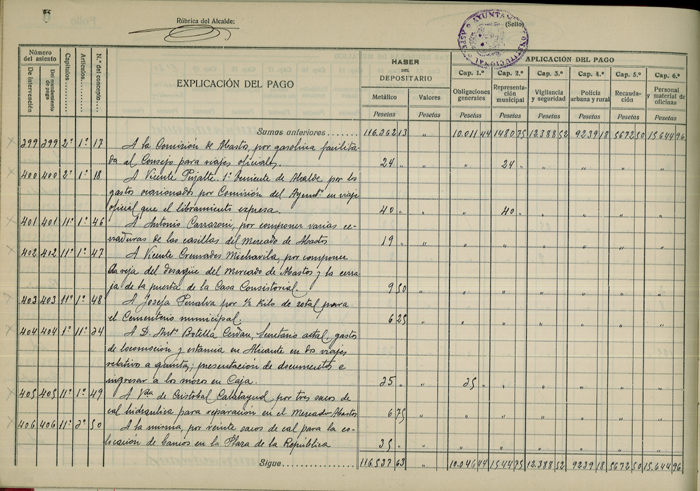 Rúbrica del Alcalde:
(Sello)
Número del asiento
De intervención
Del mandamiento de pago
Capítulos
Artículos
N.º del concepto
EXPLICACIÓN DEL PAGO
HABER DEL DEPOSITARIO
Metálico
Valores
Pesetas
Pesetas
APLICACIÓN DEL PAGO
Cap. 1.º Cap. 2.º Cap. 3.º Cap. 4.º Cap. 5.º Cap. 6.º
Obligaciones generales
Representación municipal
Vigilancia y seguridad
Policía urbana y rural
Recaudación
Personal y material de oficinas
Pesetas Pesetas Pesetas Pesetas Pesetas Pesetas
Sumas anteriores 116.362 13 " 10.011 44 1480 75 12.388 52 9239 18 5672 50 15.644 96
399 399 2º 1º 17 A la Comisión de Abastos, por gasolina facilita-
da al Consejo para viajes oficiales. 24 " " " 24 " " " " "
400 400 2º 1º 18 A Vicente Pujalte, 1º Teniente de Alcalde por los
gastos ocasionados por Comisión del Ayunt.º en viaje
oficial que el libramiento expresa. 40 " " " 40 " " " " "
401 401 11º 1º 46 A Antonio por componer varias ce-
rraduras de las casillas del Mercado de Abastos 19 " " " " " " " "
402 402 11º 1º 47 A Vicente Cremades Michavila, por componer
la reja del desagüe del Mercado de Abastos y la cerra
ja de la puerta de la Casa Consistorial. 9 50 " " " " " " "
403 403 11º 1º 48 A Josefa Penalva por ½ kilo de zotal para
el Cementerio municipal. 6 25 " " " " " " "
404 404 1º 11º 24 A D. Antº Botella Cerdán, Secretario actal, gastos
de locomoción y estancia en Alicante en dos viajes
relativo a quintas; presentación de documentos e
ingresar a los mozos en Caja. 25 " " 25 " " " " " "
405 405 11º 1º 49 A Vda de Cristobal Calatayud, por tres sacos de
cal hidraulica para reparación en el Mercado Abastos 6 75 " " " " " " "
406 406 11º 2º 50 A la misma, por veinte sacos de cal para la co-
locación de bancos en la Plaza de la República 35 " " " " " " " "
Sigue 116.537 63 " 10.046 44 1544 75 12.388 52 9239 18 5672 50 15.644 96